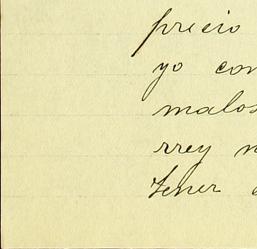 precio
yo con
malos
rrey n
tener